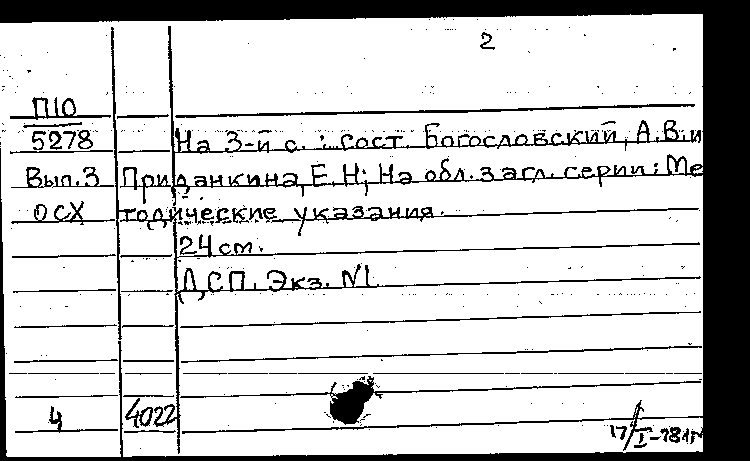 2
П10
5278 На 3-й с.: сост. Богословский, А.В. и
Вып.3 Приданкина, Е.Н; На обл. загл. серии: Ме
ОСХ тодические указания.
24 см.
ДСП. Экз. №1
4 4022
17/I-78г